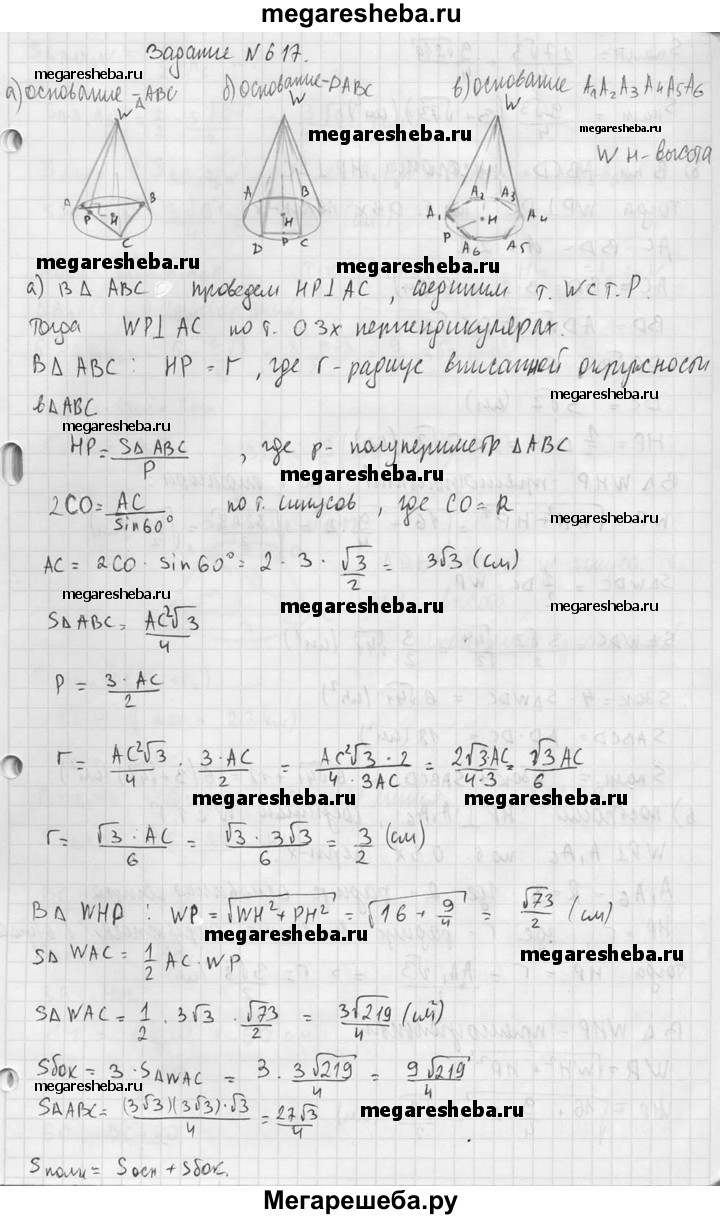 megaresheba.ru
Задание N 617.
megaresheba.ru
а) основание - △ABC б) основание - DABC в) основание A₁A₂A₃A₄A₅A₆
W W W
megaresheba.ru
megaresheba.ru
WH - высота
A B P H C
A B H D P C
A₁ A₂ A₃ A₄ A₅ A₆ P H
megaresheba.ru
megaresheba.ru
а) В △ ABC проведем HP⊥AC, соединим т. W с т. P.
Тогда WP⊥AC по т. о 3х перпендикулярах.
В △ ABC: HP = r, где r - радиус вписанной окружности
megaresheba.ru
в △ABC
megaresheba.ru
HP = S△ABC / P, где p - полупериметр △ABC
megaresheba.ru
2CO = AC / sin60° по т. синусов, где CO = R
megaresheba.ru
megaresheba.ru
AC = 2CO · sin60° = 2 · 3 · √3/2 = 3√3 (см)
megaresheba.ru
megaresheba.ru
megaresheba.ru
S△ABC = AC²√3 / 4
P = 3 · AC / 2
megaresheba.ru
r = AC²√3/4 · 3·AC/2 = AC²√3 · 2 / 4 · 3AC = 2√3AC / 4·3 = √3AC / 6
megaresheba.ru
r = √3 · AC / 6 = √3 · 3√3 / 6 = 3/2 (см)
megaresheba.ru
В △ WHP: WP = √WH² + PH² = √16 + 9/4 = √73/2 (см)
megaresheba.ru
S△ WAC = 1/2 AC · WP
megaresheba.ru
S△WAC = 1/2 · 3√3 · √73/2 = 3√219/4
megaresheba.ru
Sбок = 3 · S△WAC = 3 · 3√219/4 = 9√219/4
megaresheba.ru
S△ABC = (3√3)(3√3)·√3 / 4 = 27√3/4
megaresheba.ru
Sполн = Sосн + Sбок.
Мегарешеба.ру